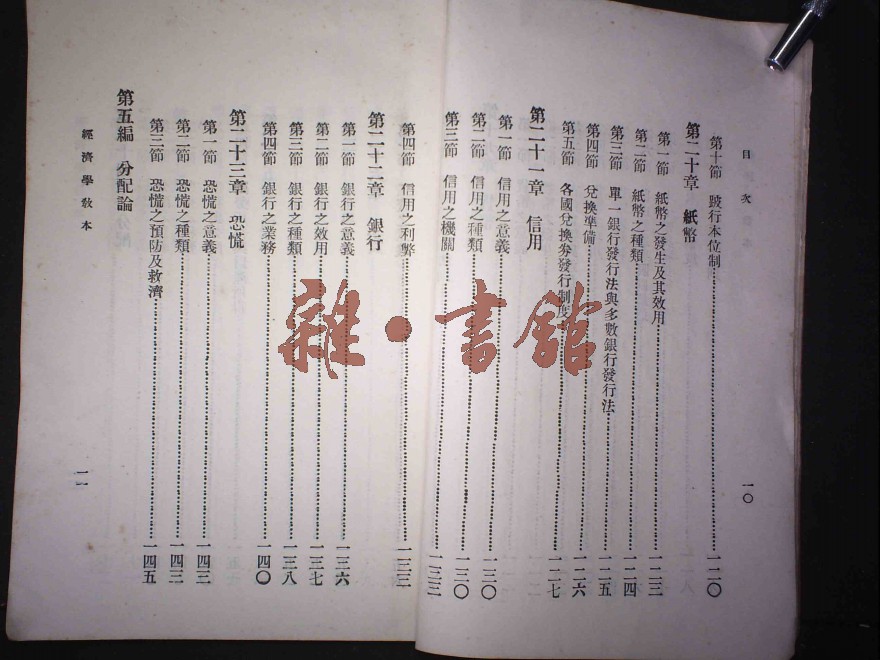 目次
一〇
第十節 跛行本位制…一二〇
第二十章 紙幣
第一節 紙幣之發生及其效用…一二三
第二節 紙幣之種類…一二四
第三節 單一銀行發行法與多數銀行發行法…一二五
第四節 兌換準備…一二六
第五節 各國兌換券發行制度…一二七
第二十一章 信用
第一節 信用之意義…一三〇
第二節 信用之種類…一三〇
第三節 信用之機關…一三二
第四節 信用之利弊…一三三
第二十二章 銀行
第一節 銀行之意義…一三六
第二節 銀行之效用…一三七
第三節 銀行之種類…一三八
第四節 銀行之業務…一四〇
第二十三章 恐慌
第一節 恐慌之意義…一四三
第二節 恐慌之種類…一四三
第三節 恐慌之預防及救濟…一四五
第五編 分配論
經濟學敎本
一一
雜·書館